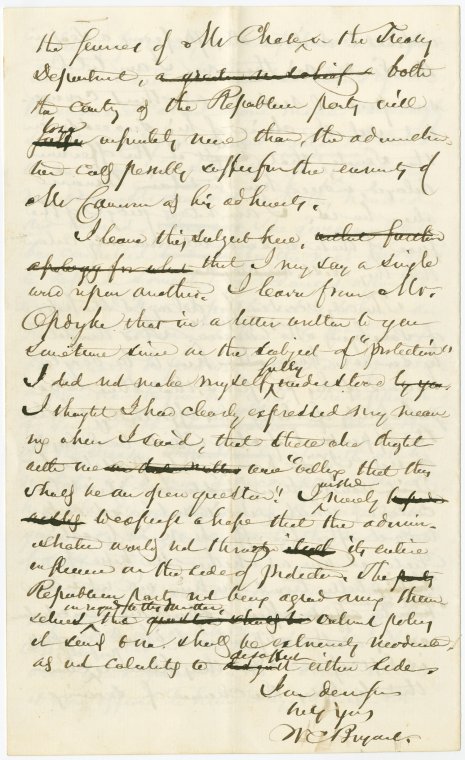 the services of Mr Chase in the Treasury
Department, both
the cause of the Republican party will
infinitely more than the administra-
tion could possibly suffer from the enmity of
Mr Cameron and his adherents.
I leave this subject here,
apology for what that I may say a single
word upon another. I learn from Mr.
Opdyke that in a letter written to you
sometime since on the subject of "protection"
I did not make myself fully understood by you.
I thought I had clearly expressed my mean
ing when I said, that those who thought
with me were "willing that this
should be an open question." I wished merely
to express a hope that the admin-
istration would not throw its entire
influence on the side of protection. The party
Republican party not being agreed among them-
selves in regard to this matter, the policy
it seems to me should be extremely moderate,
as not calculated to disgust either side.
I am dear sir
truly yours
W C Bryant.